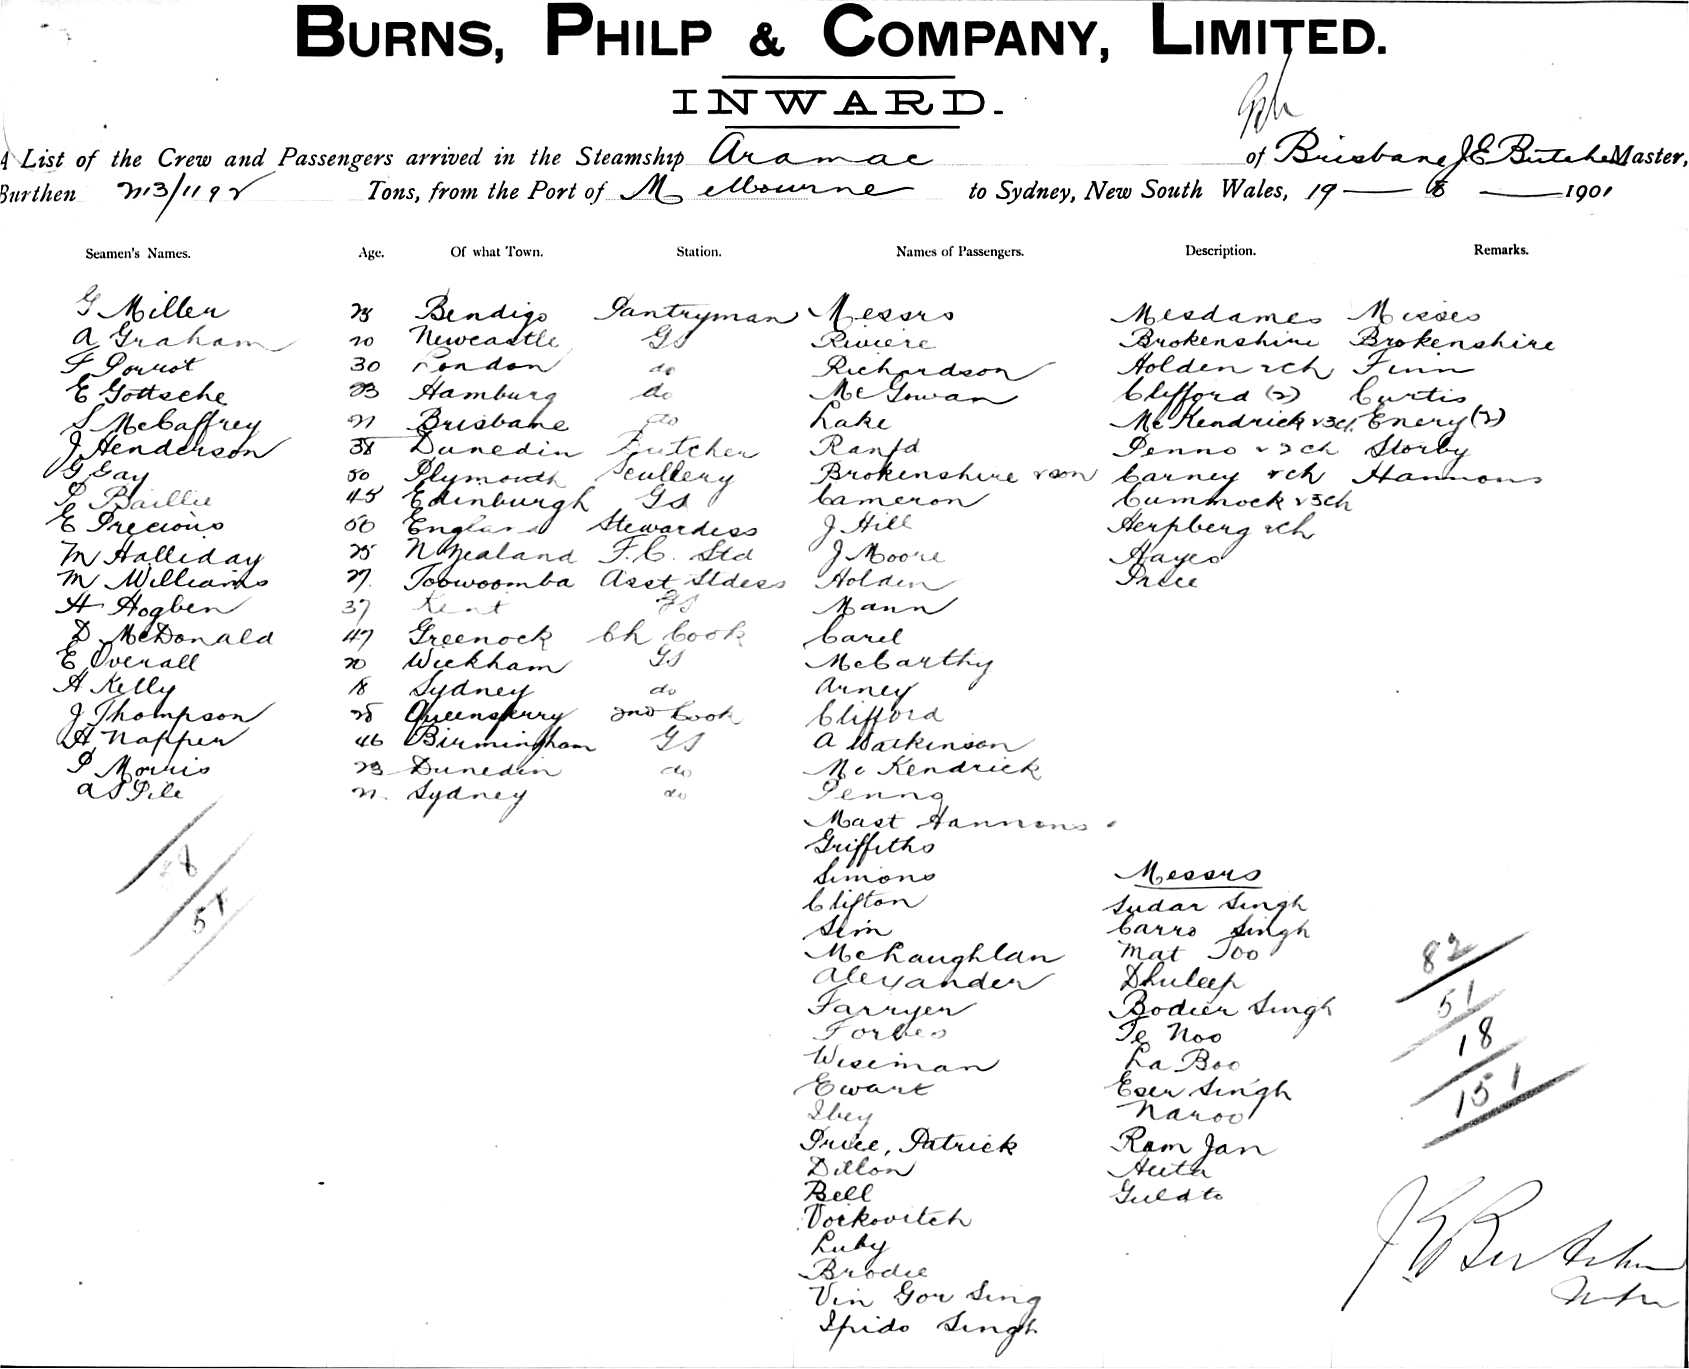 BURNS, PHILP & COMPANY, LIMITED.
INWARD.
A List of the Crew and Passengers arrived in the Steamship Aramac of Brisbane J E Butcher Master,
Burthen 2113/1192 Tons, from the Port of Melbourne to Sydney, New South Wales, 19 — 8 — 1901
Seamen's Names. Age. Of what Town. Station. Names of Passengers. Description. Remarks.
G Miller 28 Bendigo Pantryman Messrs Mesdames Misses
A Graham 20 Newcastle GS Riviere Brokenshire Brokenshire
F Porrot 30 London do Richardson Holden & ch Finn
E Gottsche 23 Hamburg do McGowan Clifford (2) Curtis
S McCaffrey 21 Brisbane do Lake McKendrick & 3 ch Enery (2)
J Henderson 38 Dunedin Butcher Ranfd Penno & 2 ch Storby
G Gay 50 Plymouth Scullery Brokenshire & son Carney & ch Hannons
P Baillie 45 Edinburgh GS Cameron Cummock & 3 ch
E Precious 50 England Stewardess J Hill Herpberg & ch
M Halliday 25 N Zealand F.C. Std J Moore Hayes
M Williams 27. Toowoomba Asst Stdess Holden Price
H Hogben 37 Kent GS Mann
D McDonald 47 Greenock Ch Cook Carel
E Overall 20 Wickham GS McCarthy
A Kelly 18 Sydney do Arney
J Thompson 28 Queensferry 2nd Cook Clifford
H Napper 46 Birmingham GS A Watkinson
P Morris 23 Dunedin do McKendrick
A S Pile 21. Sydney do Penno
Mast Hannons
Griffiths
Simons Messrs
Clifton Sudar Singh
Sim Carro Singh
McLaughlan Mat Too
Alexander Dhuleep
Farryer Bodier Singh
Forbes Te Noo
Wiseman La Boo
Ewart Eser Singh
Ibey Naroo
Price, Patrick Ram Jan
Dillon
Bell Guldto
Vockovitch
Luby
Brodie
Vin Gor Sing
Spido Singh
18
51
82
51
18
151
J E Butcher